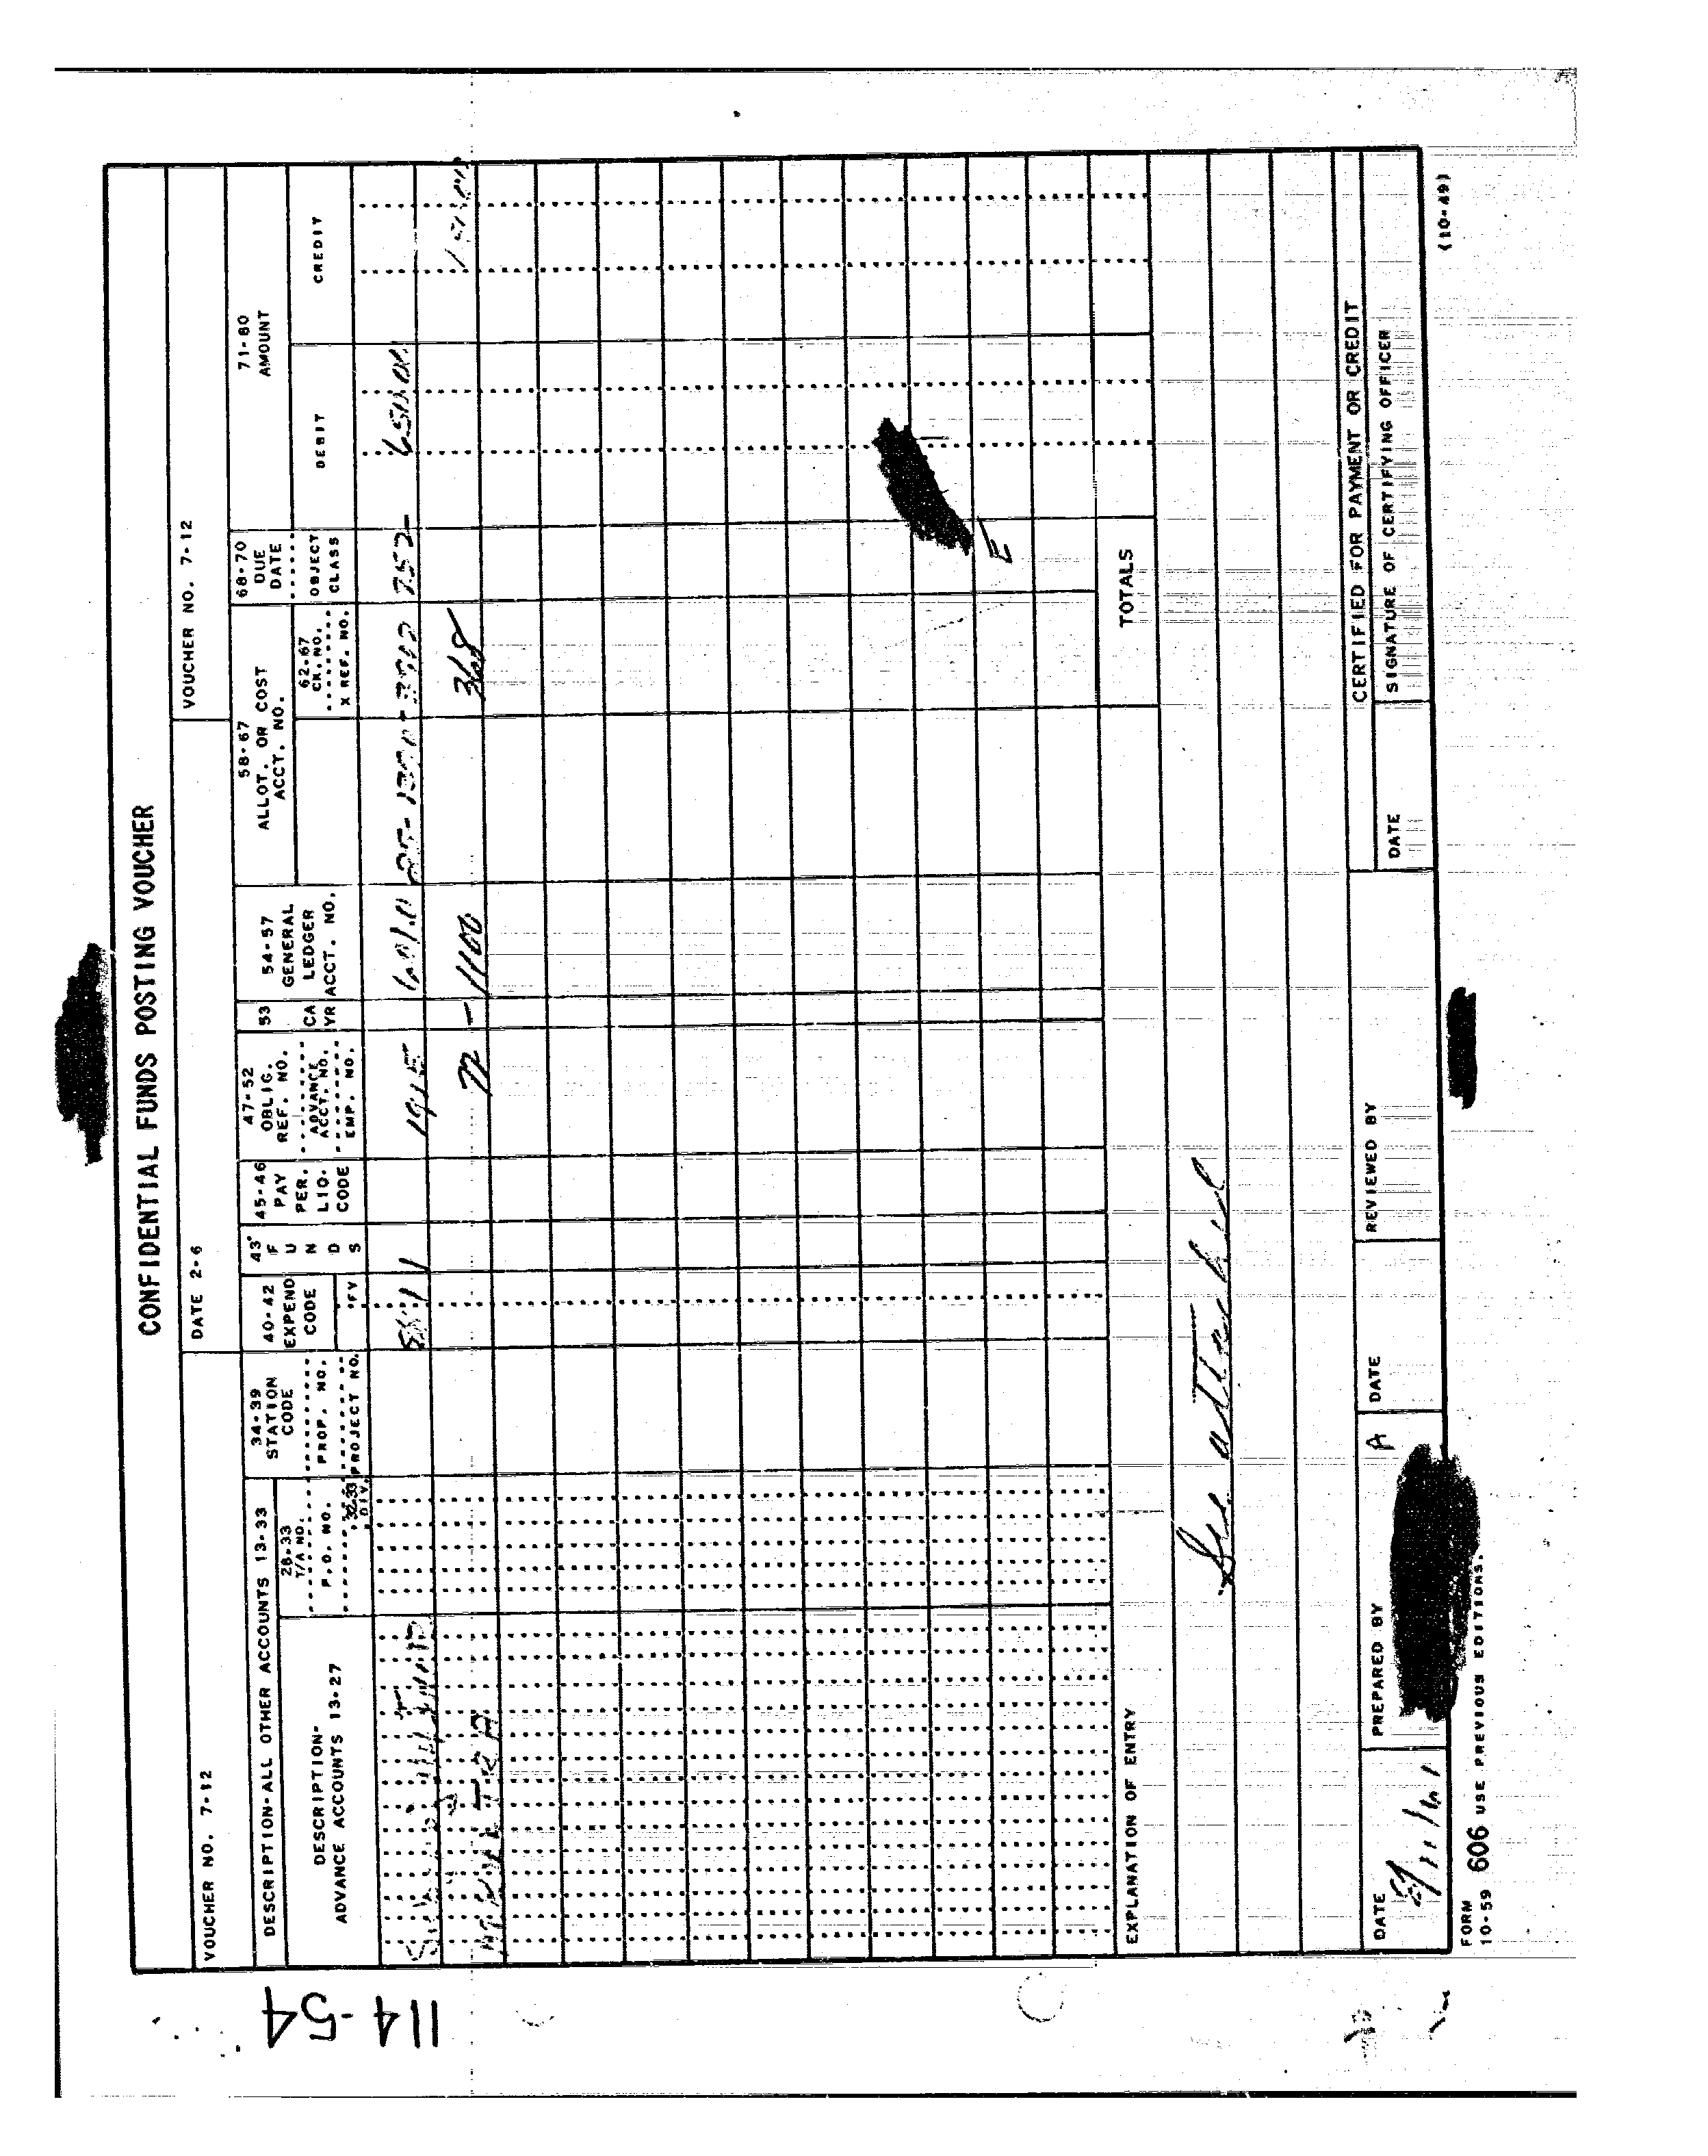 CONFIDENTIAL FUNDS POSTING VOUCHER
VOUCHER NO. 7-12
DATE 2-6
VOUCHER NO. 7-12
DESCRIPTION-ALL OTHER ACCOUNTS 13-33
DESCRIPTION-
ADVANCE ACCOUNTS 13-27
28-33
T/A NO.
P.O. NO.
32-33
DIV.
34-39
STATION
CODE
PROP. NO.
PROJECT NO.
40-42
EXPEND
CODE
FY
43
F
U
N
D
S
45-46
PAY
PER.
LIQ.
CODE
47-52
OBLIG.
REF. NO.
ADVANCE
ACCT. NO.
EMP. NO.
53
CA
YR
54-57
GENERAL
LEDGER
ACCT. NO.
58-67
ALLOT. OR COST
ACCT. NO.
62-67
CK. NO.
X REF. NO.
68-70
DUE
DATE
OBJECT
CLASS
71-80
AMOUNT
DEBIT
CREDIT
1915
752-
72 - 1100 368
TOTALS
EXPLANATION OF ENTRY
See attached
DATE
PREPARED BY
A
DATE
REVIEWED BY
CERTIFIED FOR PAYMENT OR CREDIT
DATE
SIGNATURE OF CERTIFYING OFFICER
FORM
10-59 606 USE PREVIOUS EDITIONS.
(10-49)
114-54